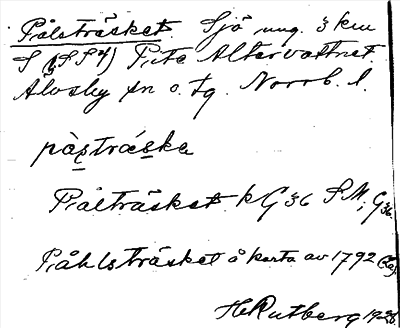 Pålsträsket. Sjö ung. 3 km
S Pite Altervattnet.
Älvsby sn o. tg. Norrb. l.
pàs̱trás̱ka
Pålträsket k G 36 S M; G 36
Påhlsträsket å karta av 1792
H Rutberg 1928